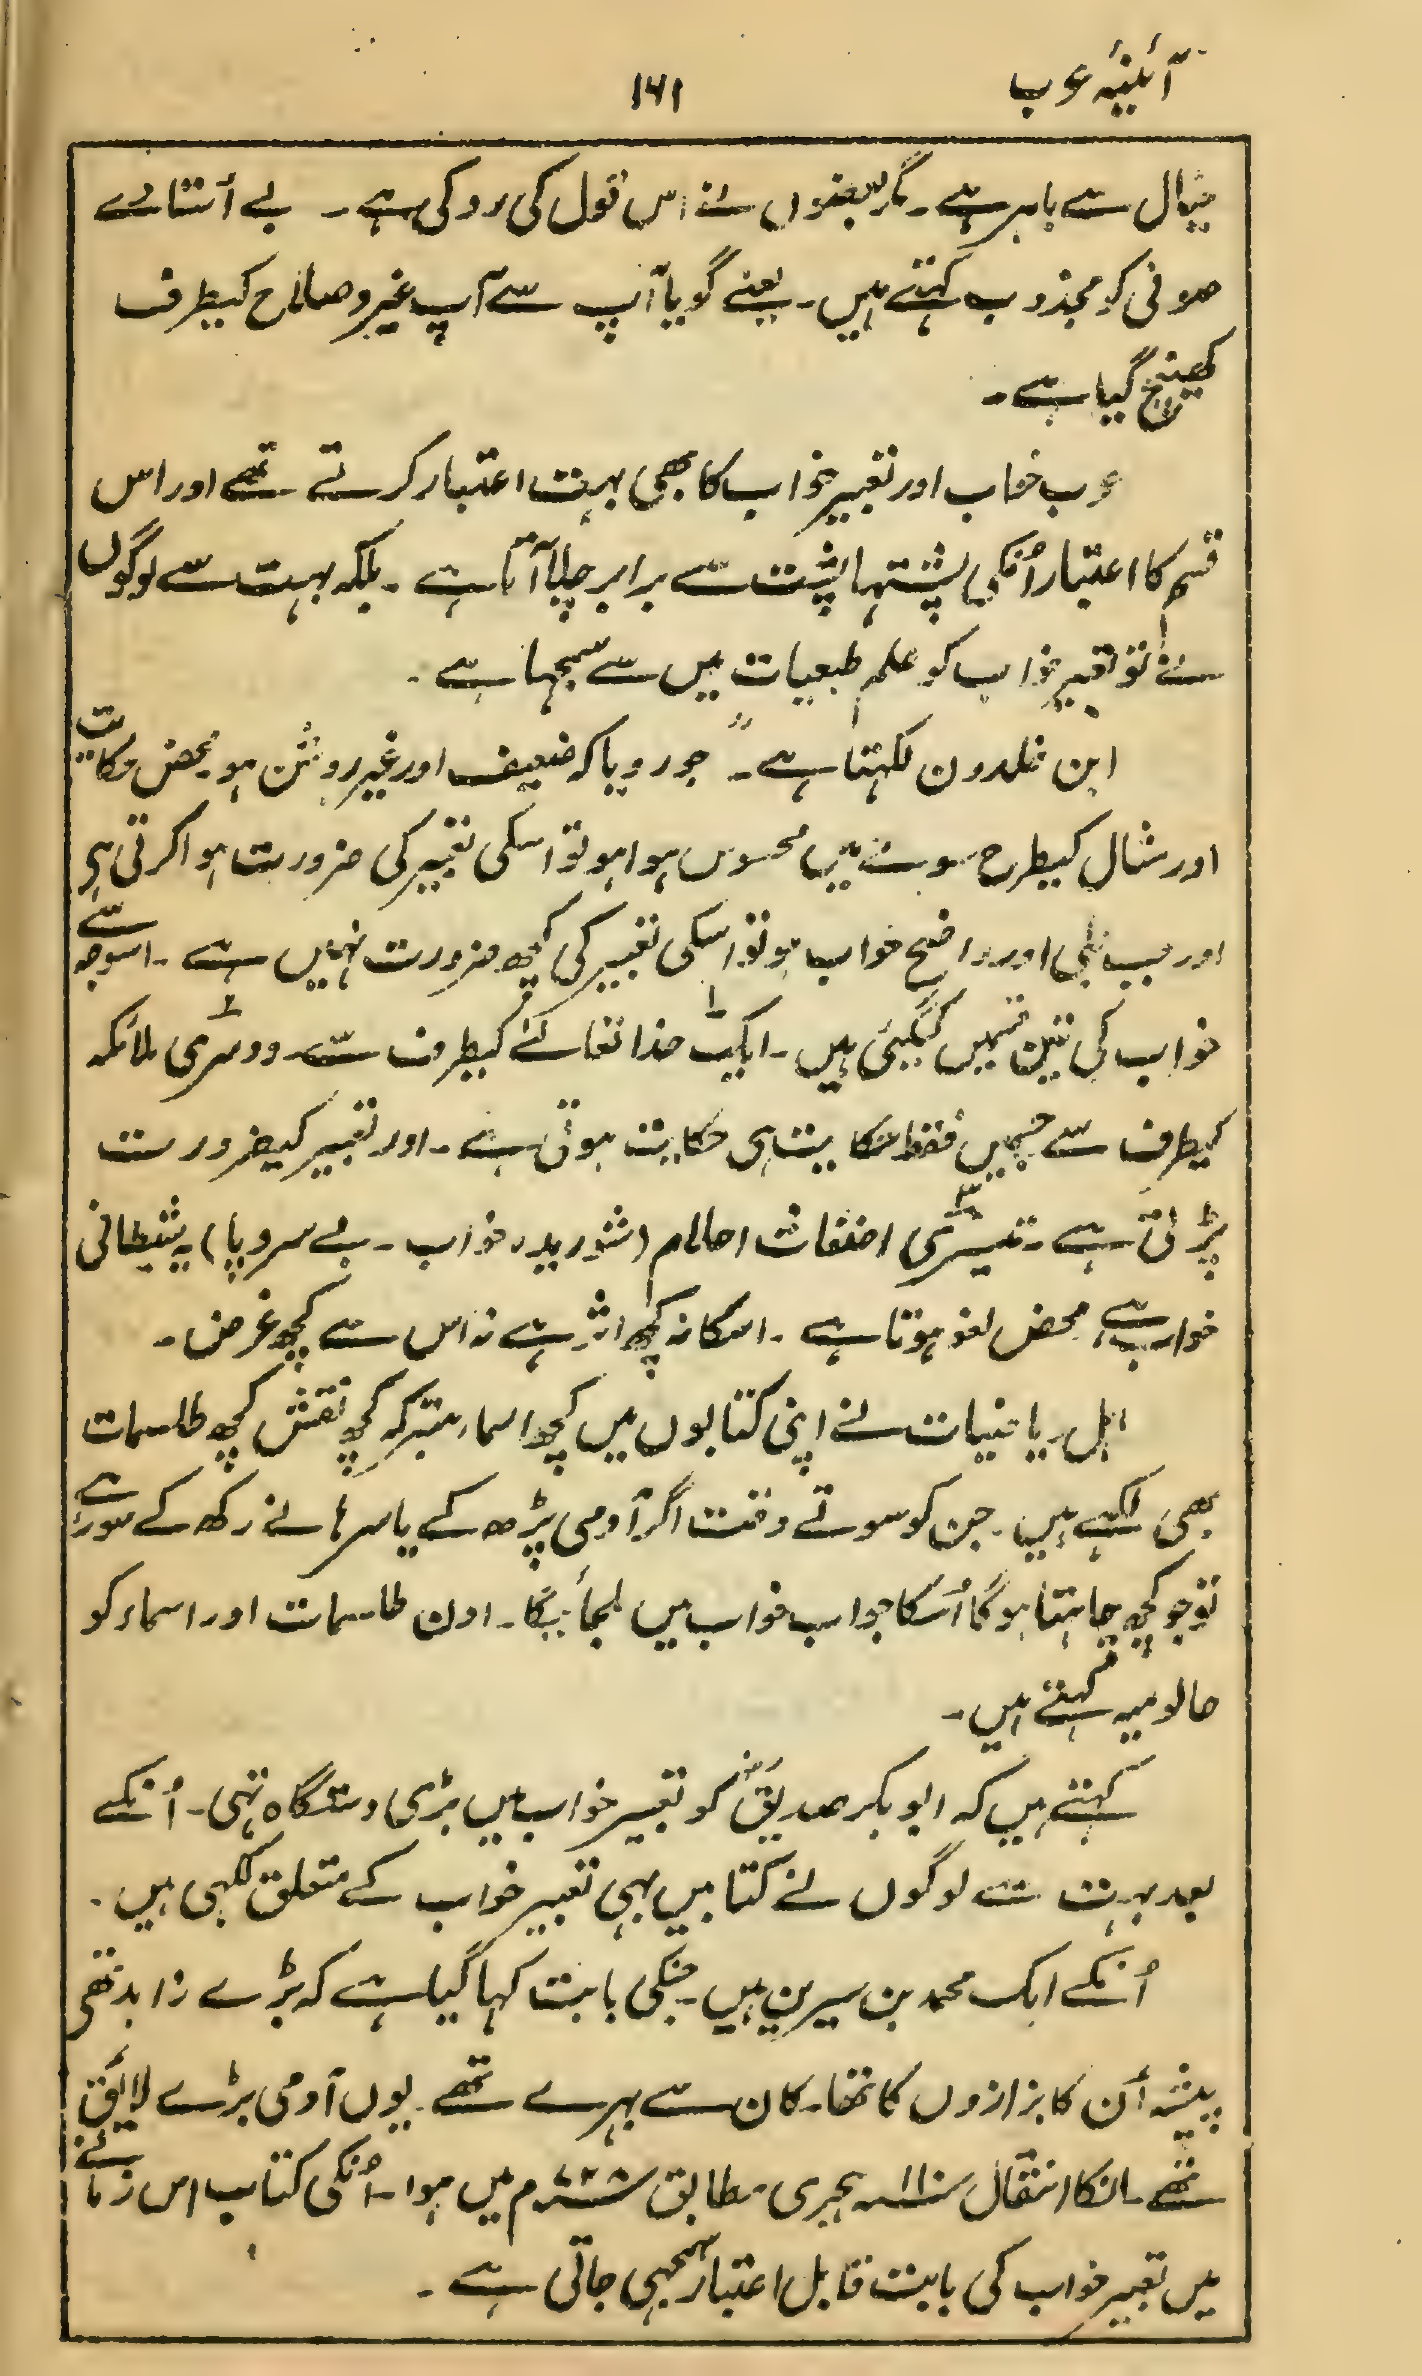 آئینۂ عرب
۱۶۱
خیال سے باہر ہے۔ مگر بعضوں نے اس قول کی رد کی ہے۔ بے اُستادے
صوفی کو مجذوب کہتے ہیں۔ یعنے گویا آپ سے آپ خیر و صلاح کیطرف
کھینچ گیا ہے۔
عرب خواب اور تعبیر خواب کا بھی بہت اعتبار کرتے تھے اور اس
قسم کا اعتبار اُنکی پشتہا پشت سے برابر چلا آتا ہے۔ بلکہ بہت سے لوگوں
نے تو تعبیر خواب کو علم طبعیات میں سے سمجہا ہے۔
ابن خلدون لکہتا ہے۔ "جو رویا کہ ضعیف اور غیر روشن ہو محض حکایت
اور مثال کیطرح سونے میں محسوس ہوا ہو تو اسکی تعبیر کی ضرورت ہوا کرتی ہی
اور جب جلی اور واضح خواب ہو تو اسکی تعبیر کی کچھ ضرورت نہیں ہے۔ اسوجہ سے
خواب کی تین قسمیں کیگئی ہیں۔ ایک۱ خدا تعالےٰ کیطرف سے۔ دوسری۲ ملائکہ
کیطرف سے جسمیں فقط حکایت ہی حکایت ہوتی ہے۔ اور تعبیر کیضرورت
پڑتی ہے۔ تیسری۳ اضغاث احلام (شوریدہ خواب۔ بے سروپا) یہ شیطانی
خواب ہے محض لغو ہوتا ہے۔ اسکا نہ کچھ اثر ہے نہ اس سے کچھ غرض۔
اہل ریاضیات نے اپنی کتابوں میں کچھ اسماء متبرکہ کچھ نقش کچھ طلسمات
بھی لکہے ہیں۔ جن کو سوتے وقت اگر آدمی پڑھ کے یا سرہانے رکھ کے سورہے
تو جو کچھ چاہتا ہوگا اُسکا جواب خواب میں لمجائیگا۔ اون طلسمات اور اسماء کو
حالومیہ کہتے ہیں۔
کہتے ہیں کہ ابو بکر صدیقؓ کو تعبیر خواب میں بڑی دستگاہ تہی۔ اُنکے
بعد بہت سے لوگوں نے کتابیں بہی تعبیر خواب کے متعلق لکہی ہیں۔
اُنکے ایک محمد بن سیرین ہیں۔ جنکی بابت کہا گیا ہے کہ بڑے زاہد تھی
پیشہ اُن کا بزازوں کا تھا۔ کان سے بہرے تھے۔ یوں آدمی بڑے لائق
تھے۔ انکا انتقال سنہ۱۱۰ ہجری مطابق م میں ہوا۔ اُنکی کتاب اس زمانے
میں تعبیر خواب کی بابت قابل اعتبار سمجہی جاتی ہے۔